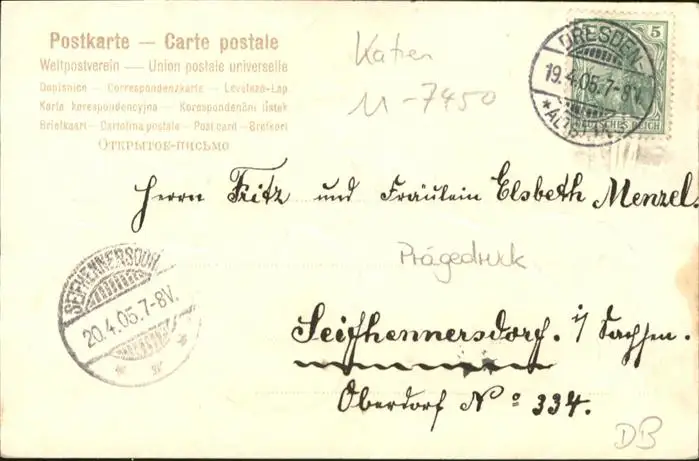 Postkarte — Carte postale
Weltpostverein — Union postale universelle
Dopisnice — Correspondenzkarte — Levelezö-Lap
Karta korespondencyjna — Korespondenčni listek
Briefkaart — Cartolina postale — Post card — Brefkort
Открытое-письмо
M-7450
5
DRESDEN-
19.4.05.7-8V.
DEUTSCHES REICH
Herrn Fritz und Fräulein Elsbeth Menzel.
Prägedruck
SEIFHENNERSDORF
20.4.05.7-8V.
Seifhennersdorf. i/ Sachsen.
Oberdorf No 334.
DB